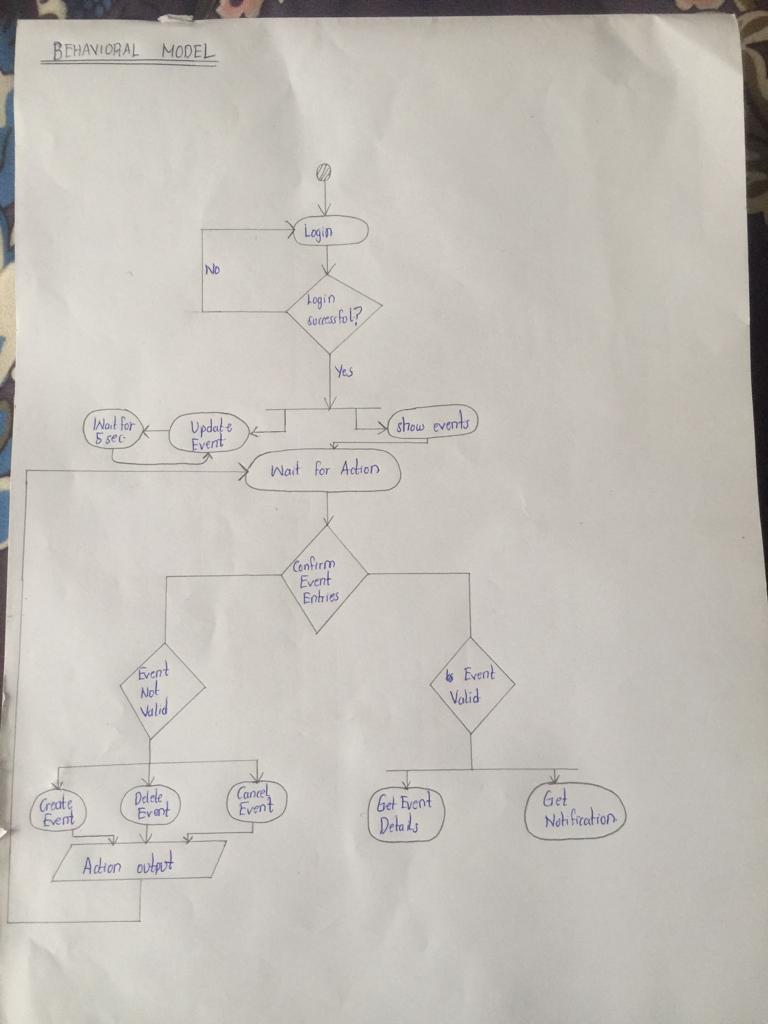 BEHAVIORAL MODEL
Login
No
Login
successful?
Yes
Wait for
5 sec.
Update
Event
show events
Wait for Action
Confirm
Event
Entries
Event
Not
Valid
Event
Valid
Create
Event
Delete
Event
Cancel
Event
Get Event
Details
Get
Notification
Action output